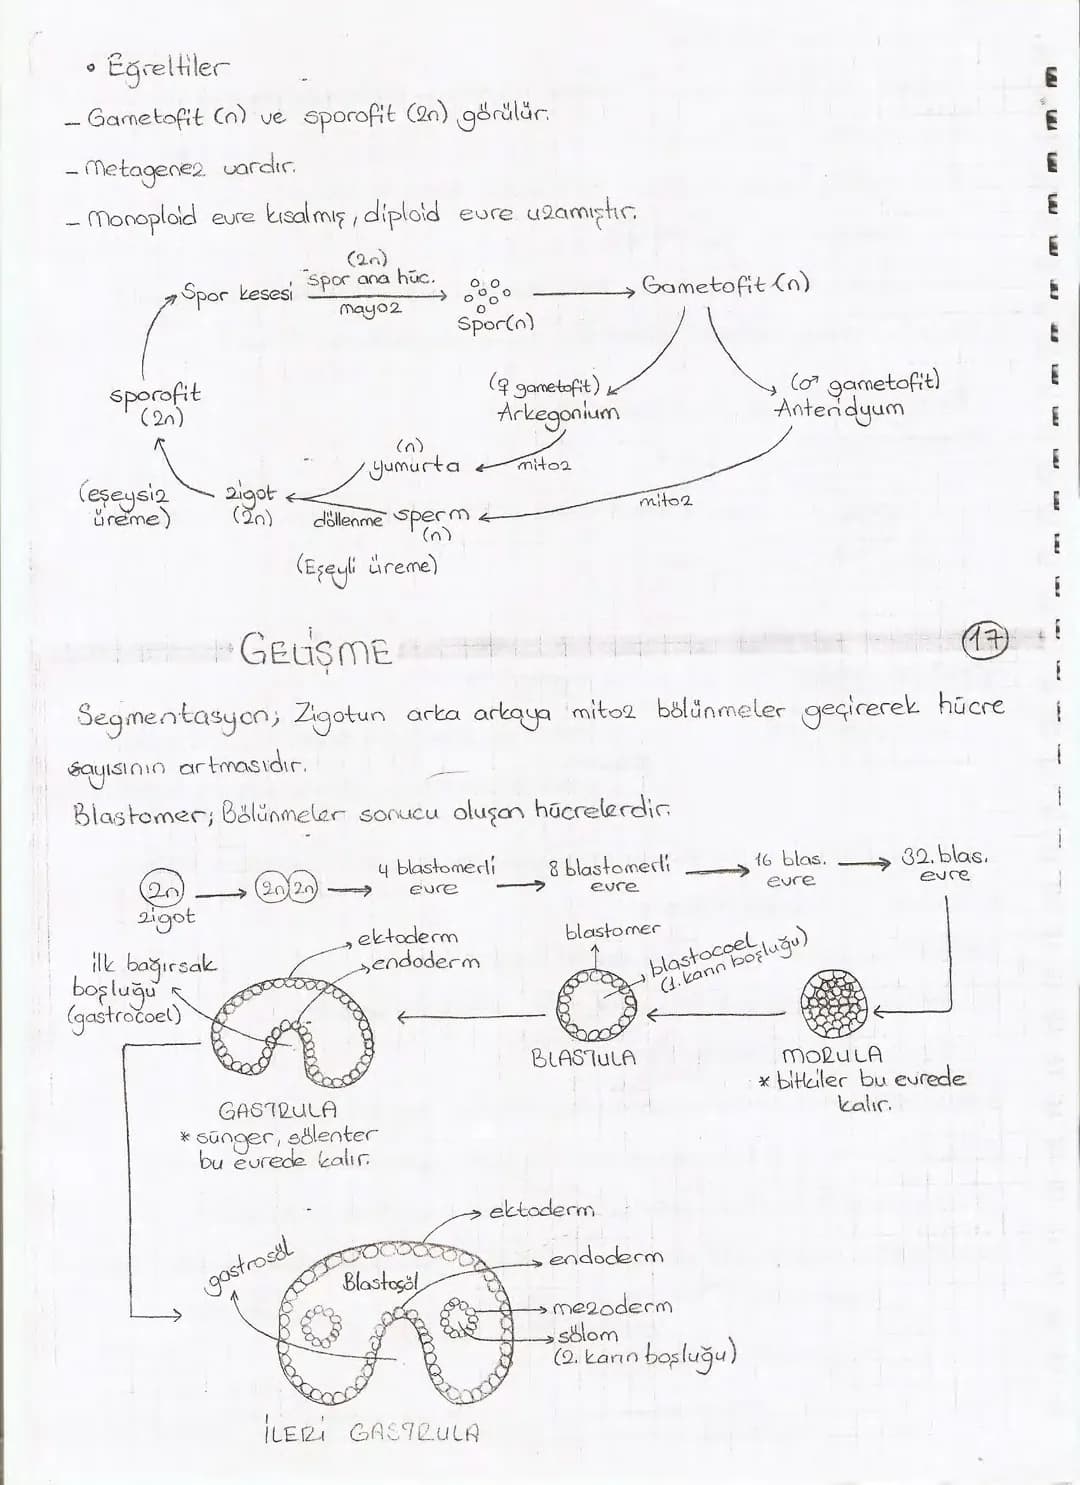 • Eğreltiler
- Gametofit (n) ve sporofit (2n) görülür.
- Metagenez vardır.
- Monoploid evre kısalmış, diploid evre uzamıştır.
(2n)
Spor kesesi
spor ana hüc.
mayoz
Spor(n)
Gametofit (n)
sporofit
(2n)
(♀ gametofit)
Arkegonium
(♂ gametofit)
Anteridyum
(n)
yumurta
mitoz
mitoz
(eşeysiz
üreme)
zigot
(2n)
döllenme
sperm
(n)
(Eşeyli üreme)
GELİŞME
17
Segmentasyon; Zigotun arka arkaya mitoz bölünmeler geçirerek hücre
sayısının artmasıdır.
Blastomer; Bölünmeler sonucu oluşan hücrelerdir.
2n
zigot
2n 2n
4 blastomerli
evre
8 blastomerli
evre
16 blas.
evre
32. blas.
evre
ilk bağırsak
boşluğu
(gastrocoel)
ektoderm
endoderm
blastomer
blastocoel
(1. karın boşluğu)
GASTRULA
* sünger, sölenter
bu evrede kalır.
BLASTULA
MORULA
* bitkiler bu evrede
kalır.
gastrosöl
Blastosöl
ektoderm
endoderm
mezoderm
sölom
(2. karın boşluğu)
İLERİ GASTRULA